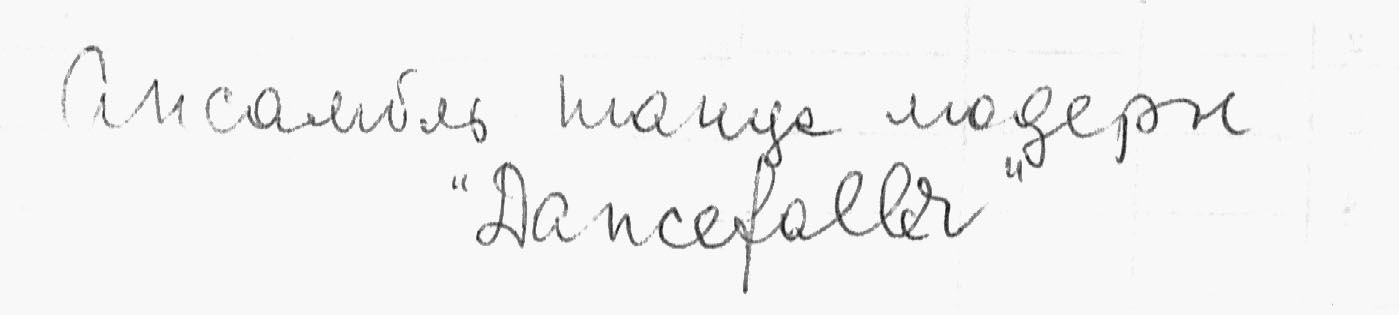 Ансамбль танца модерн
"Dancefaller"